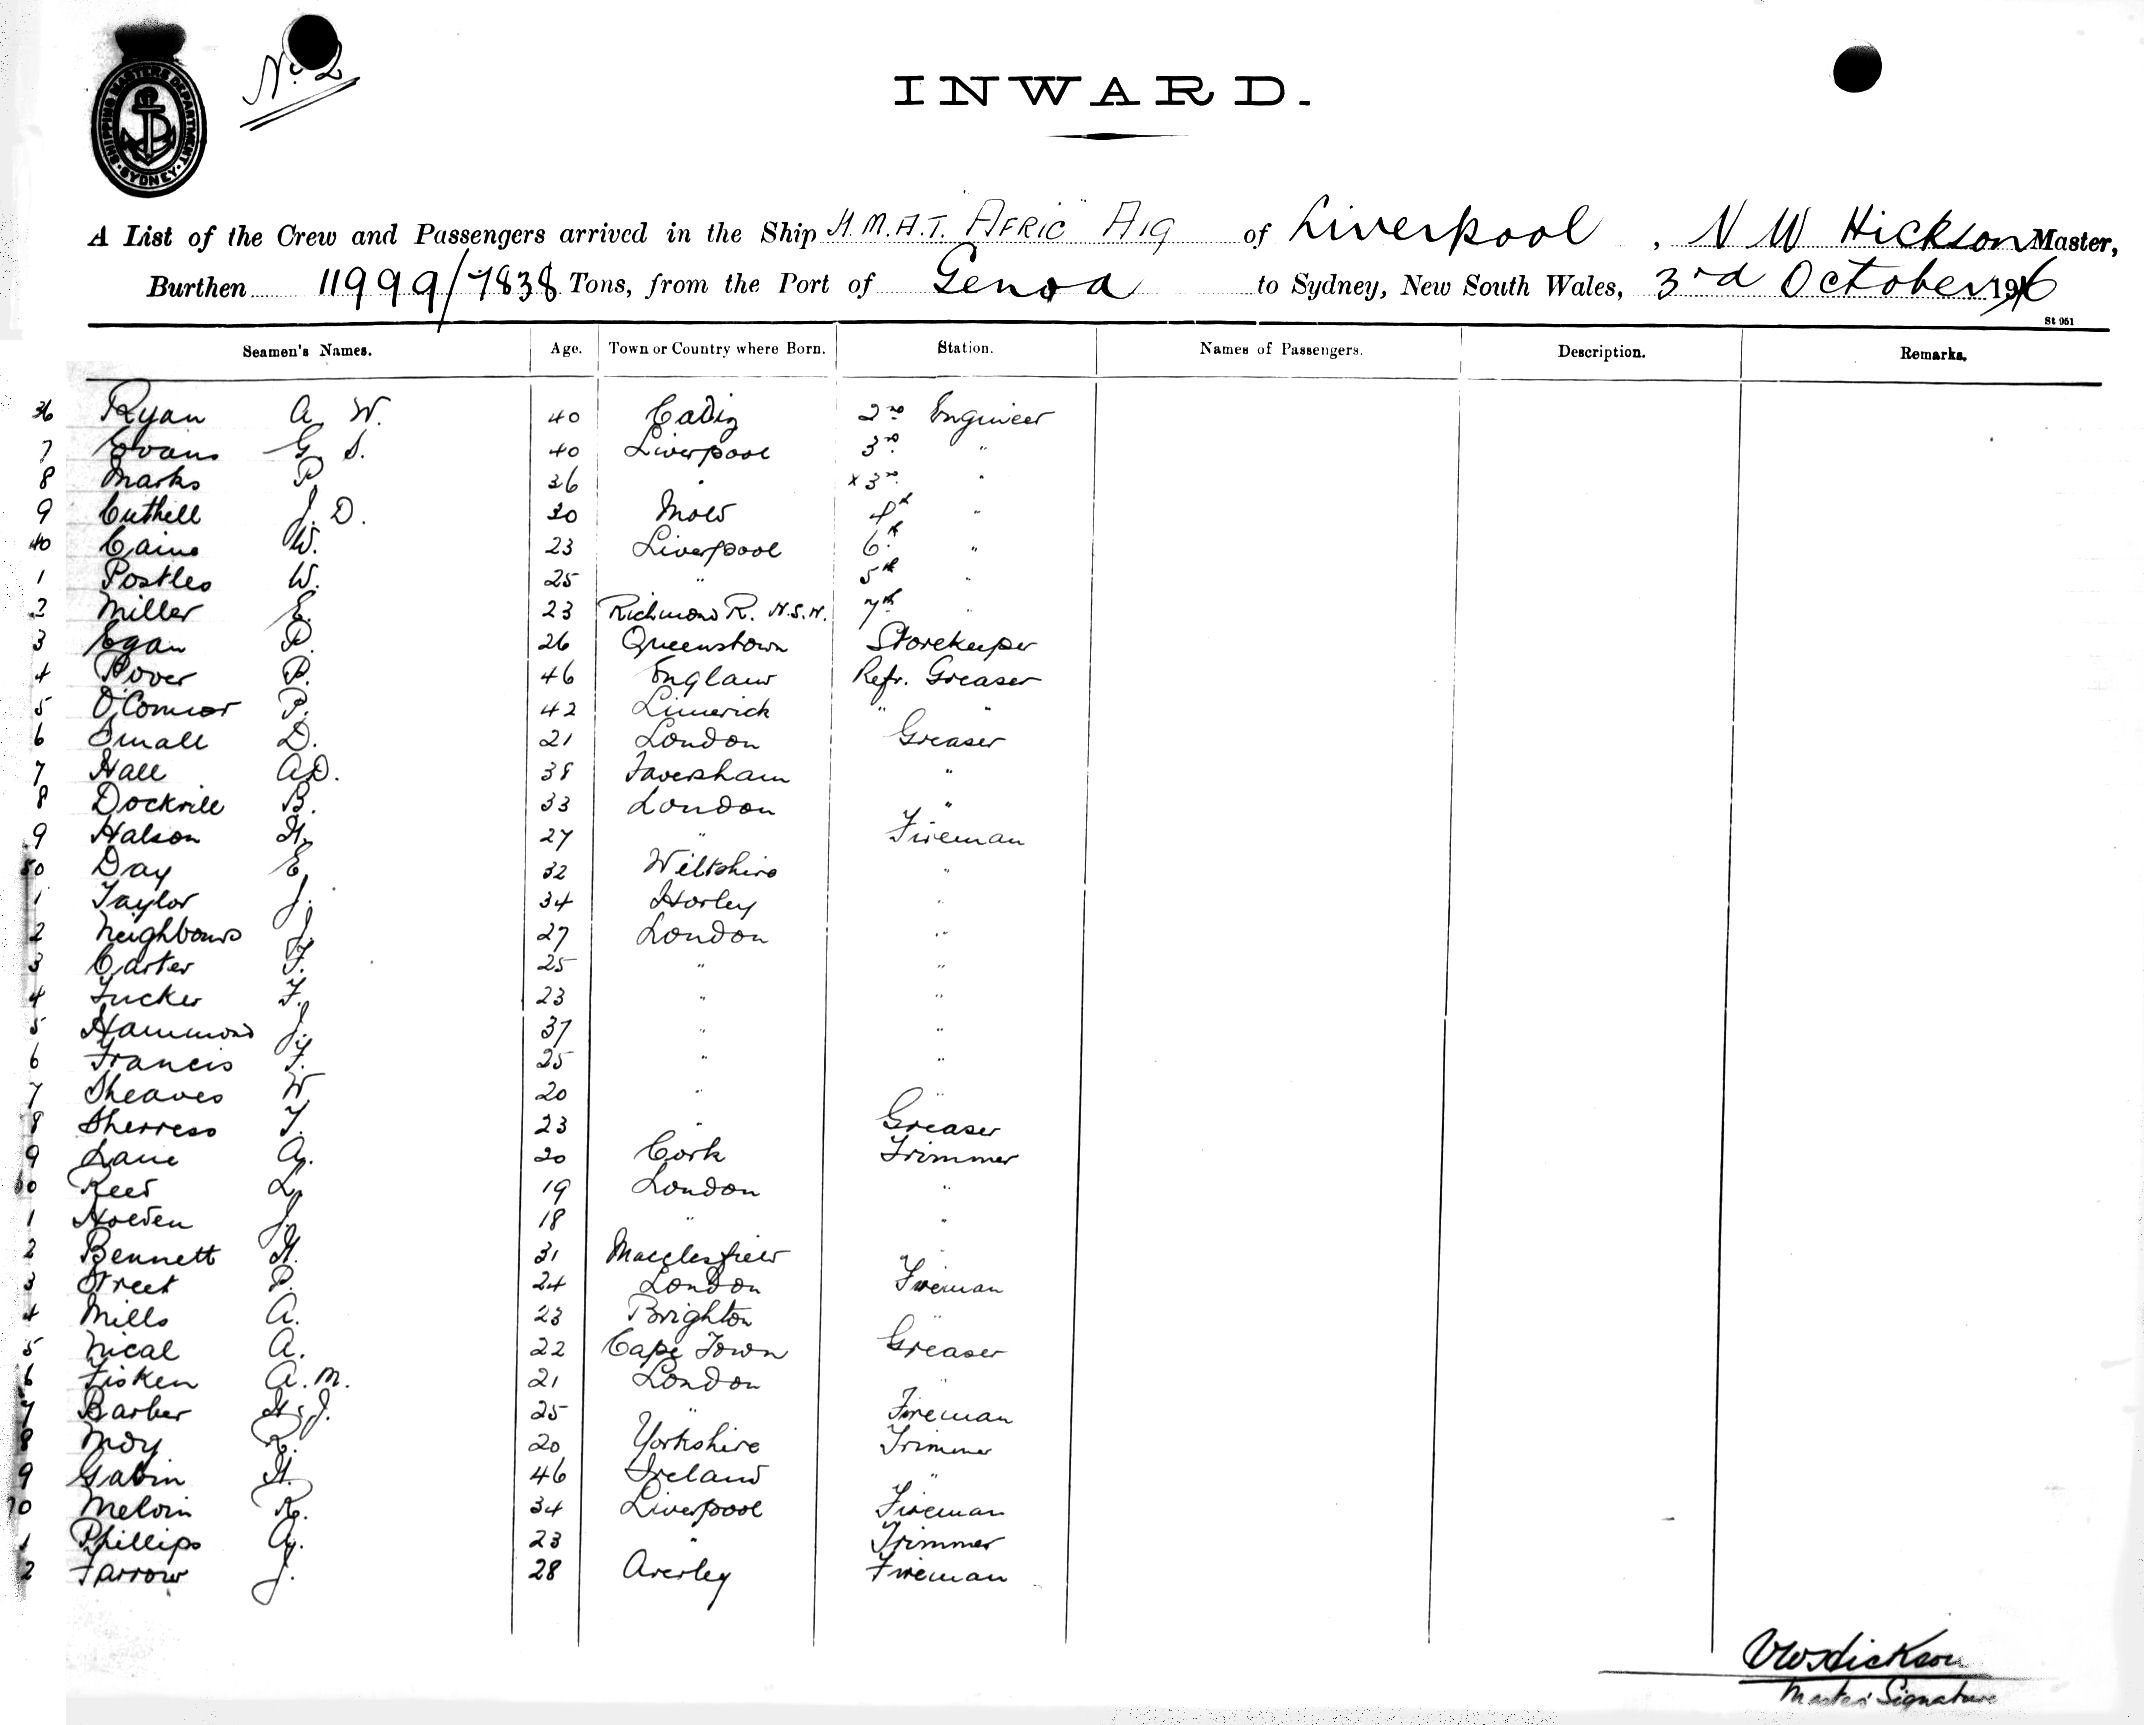 SHIPPING MASTERS DEPARTMENT
SYDNEY
No. 2
INWARD.
A List of the Crew and Passengers arrived in the Ship H.M.A.T. "AFRIC" A19 of Liverpool, N W Hickson Master,
Burthen 11999/7838 Tons, from the Port of Genoa to Sydney, New South Wales, 3rd October 1916
St 961
Seamen's Names. Age. Town or Country where Born. Station. Names of Passengers. Description. Remarks.
36 Ryan A. W. 40 Cadiz 2nd Engineer
7 Evans G. S. 40 Liverpool 3rd "
8 Marks P 36 " x 3rd "
9 Cuthell J. D. 30 Mold 4th "
40 Caine W. 23 Liverpool 6th "
1 Postles W. 25 " 5th "
2 Miller E. 23 Richmond R. N.S.W. 7th "
3 Egan P. 26 Queenstown Storekeeper
4 Power P. 46 England Refr. Greaser
5 O'Connor P. 42 Limerick " "
6 Small D. 21 London Greaser
7 Hall A.D. 38 Faversham "
8 Dockrill B. 33 London "
9 Halson H. 27 " Fireman
50 Day E. 32 Wiltshire "
1 Taylor J. 34 Horley "
2 Neighbours J. 27 London "
3 Carter F. 25 " "
4 Tucker F. 23 " "
5 Hammond J. 37 " "
6 Francis F. 25 " "
7 Sheaves W 20 " "
8 Sherress T. 23 " Greaser
9 Lane A. 20 Cork Trimmer
60 Reed L. 19 London "
1 Holden J. 18 " "
2 Bennett H. 31 Macclesfield "
3 Street P. 24 London Fireman
4 Mills A. 23 Brighton "
5 Nical A. 22 Cape Town Greaser
6 Fisken A. M. 21 London "
7 Barber H. J. 25 " Fireman
8 Moy R. 20 Yorkshire Trimmer
9 Gavin H. 46 Ireland "
70 Melvin R. 34 Liverpool Fireman
1 Phillips A. 23 " Trimmer
2 Farrow J. 28 Averley Fireman
NW Hickson
Master's Signature